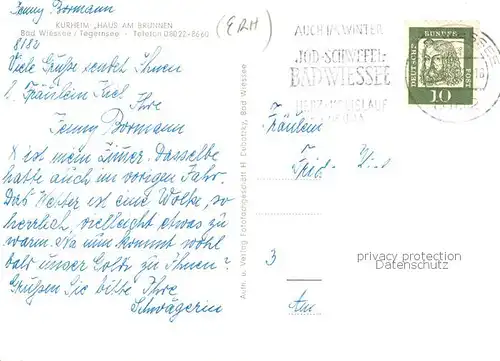 Jenny Bormann
KURHEIM „HAUS AM BRUNNEN
Bad Wiessee / Tegernsee - Telefon 08022-8660
8182
Viele Grüße sendet Ihnen
l. Fräulein
Ihre
Jenny Bormann
X ist mein Zimer. Dasselbe
hatte auch im vorigen Jahr.
Das Wetter ist eine Wolke, so
herrlich, vielleight etwas zu
warm. Na nun kommt wohl
bald unser Goldk zu Ihnen?
Grüßen Sie bitte Ihre
Schwägerin
Aufn. u. Verlag Fotofachgeschäft H. Debotzky, Bad Wiessee
(ERH)
AUCH IM WINTER
JOD-SCHWEFEL-
BAD WIESSEE
DEUTSCHE BUNDESPOST
10
Fräulein
3
Am
privacy protection
Datenschutz